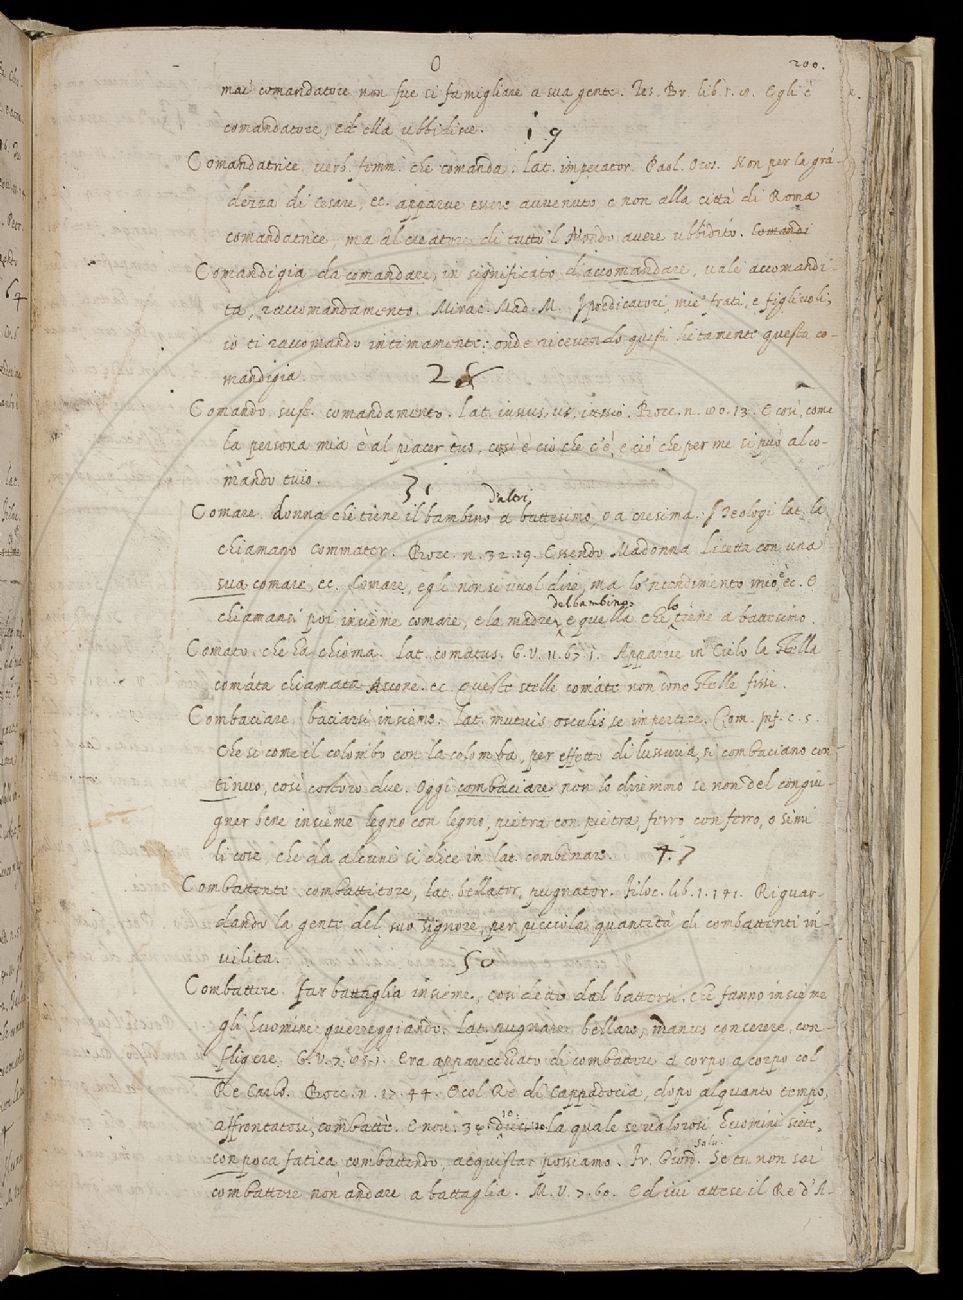 O 200.
mai comandatore non fue sì famigliare a sua gente. Tes. Br. lib. 5. Egli è
comandatore, ed ella ubbidisce. 19
Comandatrice verb. femm. che comanda. Lat. imperator. Paol. Oros. Non per la grā-
dezza di Cesare, ec. apparve essere avvenuto, e non alla città di Roma
comandatrice, ma al creatore di tutto 'l Mondo avere ubbidito. Comandi
Comandigia da comandare, in significato d'accomandare, vale accomandi-
ta, raccomandamento. Mirac. Mad. M. I predicatori, miei frati, e figliuoli,
io ti raccomando intimamente: onde ricevendo questi lietamente questa co-
mandigia. 25
Comando sust. comandamento. Lat. iussus, us, iussio. Bocc. n. 80. 13. E così, come
la persona mia è al piacer tuo, così è ciò che c'è, e ciò che per me si può al co-
mando tuio. 31
d'altri
Comare donna che tiene il bambino a battesimo, o a cresima. I Teologi lat. la
chiamano Commater. Bocc. n. 32. 19. Essendo Madonna Lisetta con una
sua comare, ec. Comare, egli non si vuol dire, ma lo 'ntendimento mio è ec. E
chiamansi poi insieme comare, e la madre del bambino, e quella che lo tiene a battesimo.
Comato che ha chioma. Lat. comatus. G. V. 11. 67. 1. Apparve in Cielo la Stella
comata chiamata Ascone. ec. queste stelle comate non sono Stelle fisse.
Combaciare baciarsi insieme. Lat. mutuis osculis se impertire. Com. Inf. c. 5.
Che se come il colombo con la colomba, per effetto di lussuria, si combaciano con
tinuo, così costoro due. Oggi combaciare non lo diremmo se non del congiu-
gner bene insieme legno con legno, pietra con pietra, ferro con ferro, o simi
li cose, che da alcuni si dice in lat. combinare. 47
Combattente combattitore, lat. bellator, pugnator. Filoc. lib. 1. 141. Riguar-
dando la gente del suo signore, per picciola quantità di combattenti in-
vilita. 50
Combattere far battaglia insieme, così detto dal battersi che fanno insieme
gli huomini guerreggiando. Lat. pugnare, bellare, manus conserere, con-
fligere. G. V. 7. 85. 1. Era apparecchiato di combattere a corpo a corpo col
Re Carlo. Bocc. n. 17. 44. E col Re di Cappadocia, dopo alquanto tempo,
affrontatosi, combattè. E nov. 34. 10 la quale se valorosi huomini siete,
con poca fatica, combattendo, acquistar possiamo. Fr. Giord. Salv. Se tu non sai
combattere non andare a battaglia. M. V. 7. 60. Ed ivi attese il Re d'A-